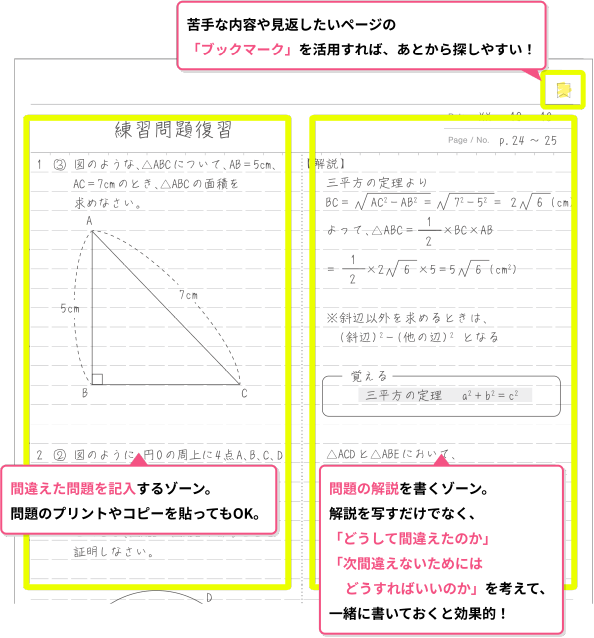 苦手な内容や見返したいページの
「ブックマーク」を活用すれば、あとから探しやすい！
練習問題復習
Page / No. p.24 〜 25
1 ③ 図のような、△ABCについて、AB=5cm、
AC=7cmのとき、△ABCの面積を
求めなさい。
A
5cm
7cm
B
C
2 ② 図のように、円Oの周上に4点A、B、C、D
間違えた問題を記入するゾーン。
問題のプリントやコピーを貼ってもOK。
証明しなさい。
D
【解説】
三平方の定理より
BC = √AC²−AB² = √7²−5² = 2√6 (cm
よって、△ABC = 1/2 ×BC×AB
= 1/2 ×2√6 ×5=5√6 (cm²)
※斜辺以外を求めるときは、
(斜辺)²−(他の辺)² となる
覚える
三平方の定理 a²+b²=c²
△ACDと△ABEにおいて、
問題の解説を書くゾーン。
解説を写すだけでなく、
「どうして間違えたのか」
「次間違えないためには
どうすればいいのか」を考えて、
一緒に書いておくと効果的！